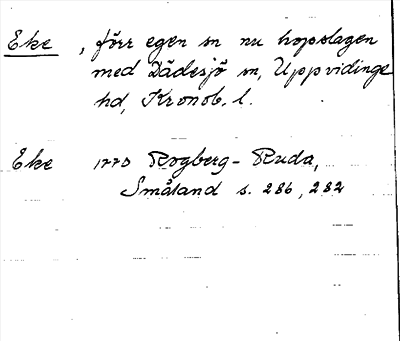 Eke, förr egen sn nu hopslagen
med Dädesjö sn, Uppvidinge
hd, Kronob. l.
Eke 1770 Rogberg-Ruda,
Småland s. 286, 282